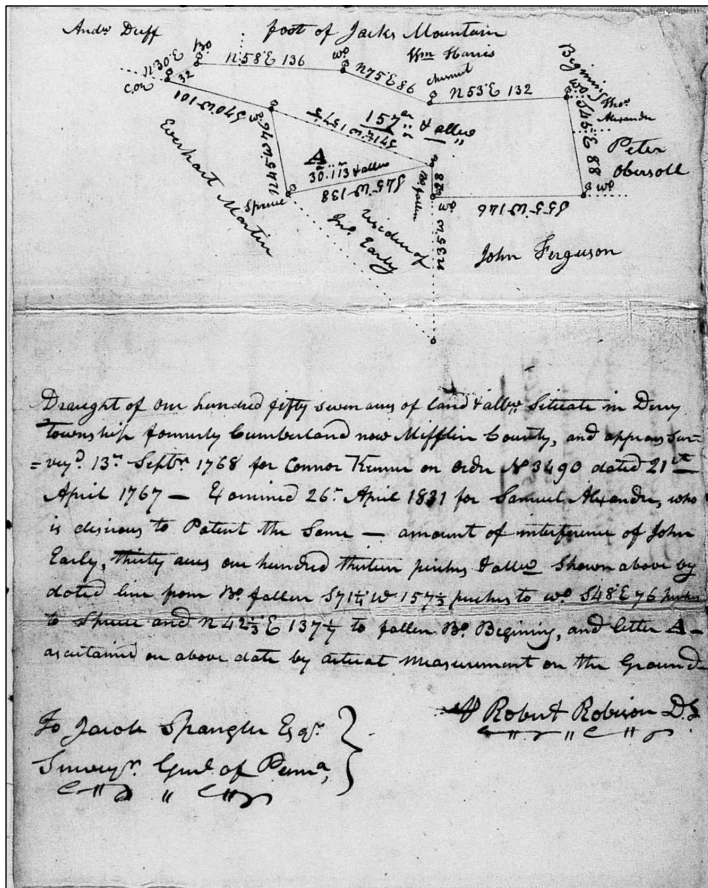 Andw Duff
foot of Jacks Mountain
Wm Harris
N 30° E
32
N 58° E 136
wo
N 75° E 86
Chesnut
N 53° E 132
Begining
wo
S 45° E 88
Thos
Alexander
Peter
Obersoll
wo
S 55° W 146
John Ferguson
wo
N 35 W
28
Bo fallen
157 ar & allow
A
30..113 & allow
S 75° W 138
N 45 W 76
S 70 W 101
Cor
Everhart Martin
Spruce
Jno. Early
Draught of one hundred fifty seven acres of land & allwe Situate in Derry
Township formerly Cumberland now Mifflin County, and appears Sur-
=veyd 13th Septbr 1768 for Connor on ordr No 3490 dated 21st
April 1767 — Examined 26th April 1831 for Samuel Alexander, who
is desirous to Patent the Same — amount of interference of John
Early, thirty acres one hundred thirteen perches & allwe Shown above by
doted line from Bo. fallen S 71¼ W 157½ perches to wo S 48° E 76 perches
to Spruce and N 42½ E 137½ to fallen Bo. Begining, and letter A —
ascertained on above date by actual measurement on the Ground
Robert Robison D.S.
To Jacob Spangler Esqr.
Surveyr. Genl of Penna,